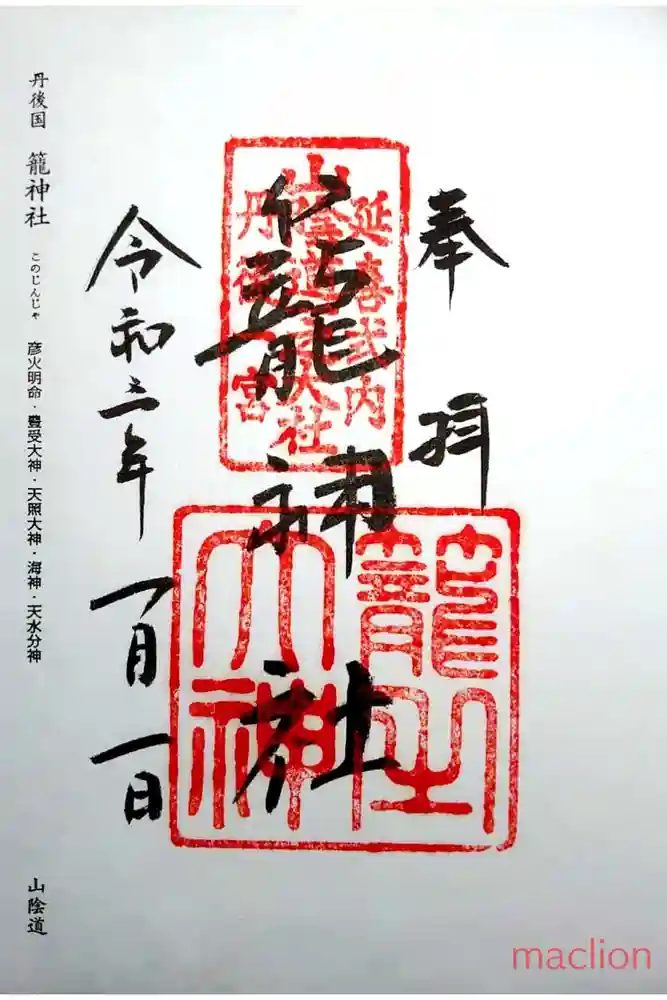 奉拝
延喜式内
山陰道大社
丹後一宮
籠神社
籠之大神
令和三年一月一日
丹後国 籠神社 このじんじゃ 彦火明命・豊受大神・天照大神・海神・天水分神 山陰道
maclion